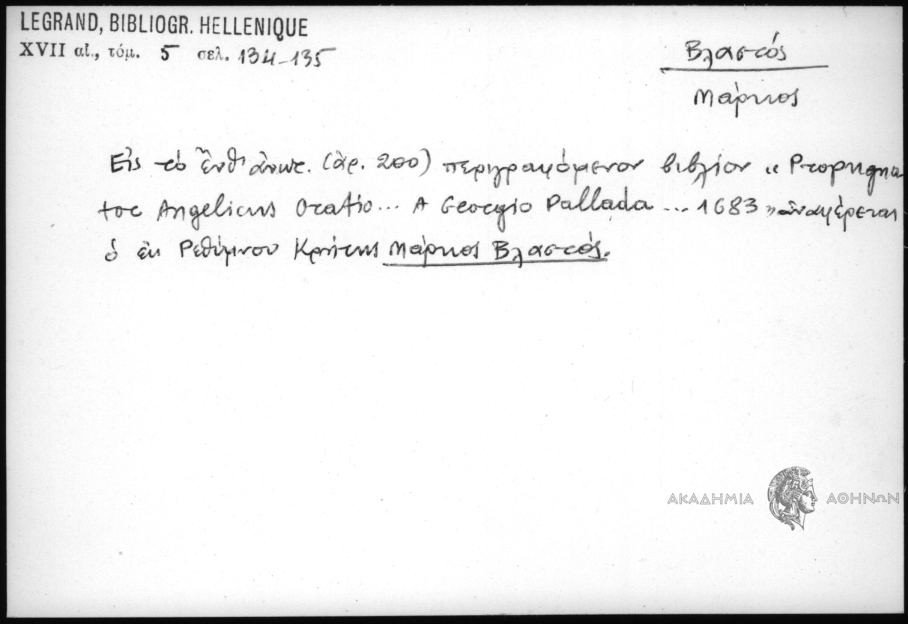 LEGRAND, BIBLIOGR. HELLENIQUE
XVII αἰ., τόμ. 5 σελ. 134-135
Βλαστός
Μάρκος
Εἰς τὸ ἔνθ' ἀνωτ. (ἀρ. 200) περιγραφόμενον βιβλίον « Propugna
tor Angelicus Oratio... A Georgio Pallada ... 1683 » ἀναφέρεται
ὁ ἐκ Ρεθύμνου Κρήτης Μάρκος Βλαστός.
ΑΚΑΔΗΜΙΑ ΑΘΗΝΩΝ